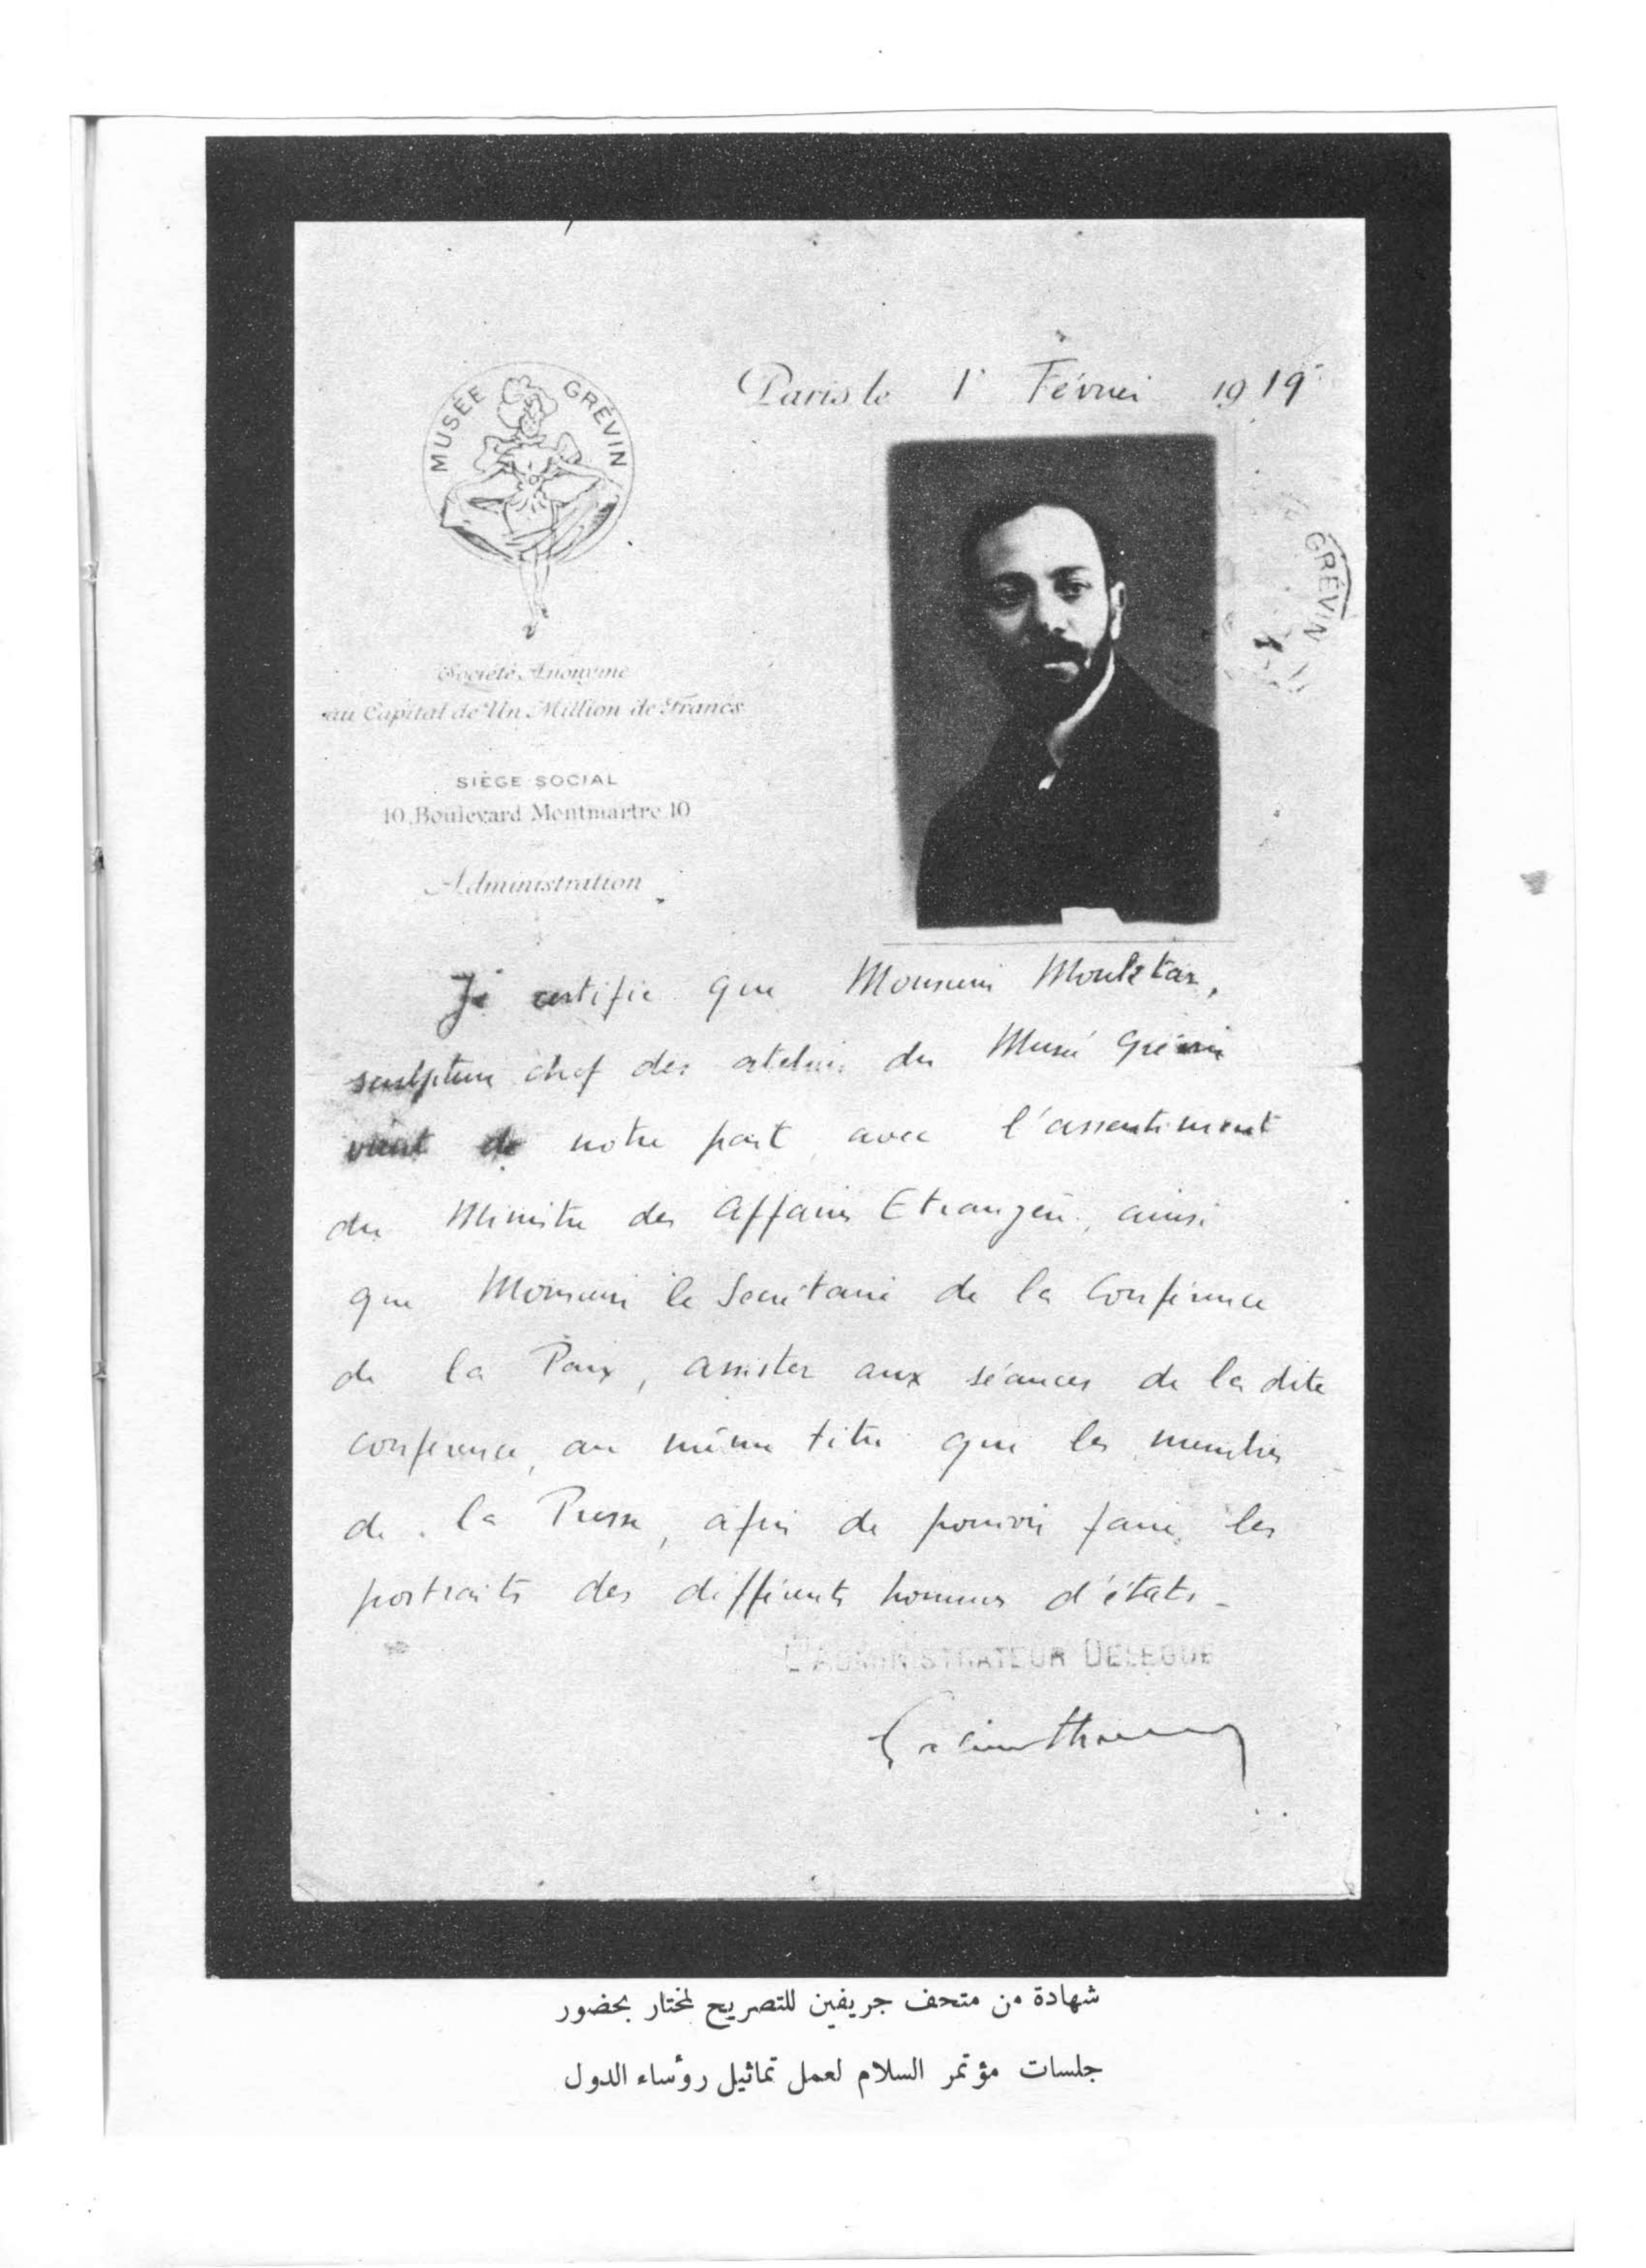 MUSÉE GRÉVIN
Paris le 1r Février 1919
GRÉVIN
Société Anonyme
au Capital de Un Million de Francs
SIÈGE SOCIAL
10, Boulevard Montmartre, 10
Administration
Je certifie que Monsieur Moukhtar,
sculpteur chef des ateliers du Musée Grévin
vient de notre part, avec l'assentiment
du Ministre des Affaires Etrangères, ainsi
que Monsieur le Secrétaire de la Conférence
de la Paix, assister aux séances de la dite
conférence, au même titre que les membres
de la Presse, afin de pouvoir faire les
portraits des différents hommes d'états -
L'ADMINISTRATEUR DELEGUE
شهادة من متحف جريفين للتصريح لمختار بحضور
جلسات مؤتمر السلام لعمل تماثيل رؤساء الدول